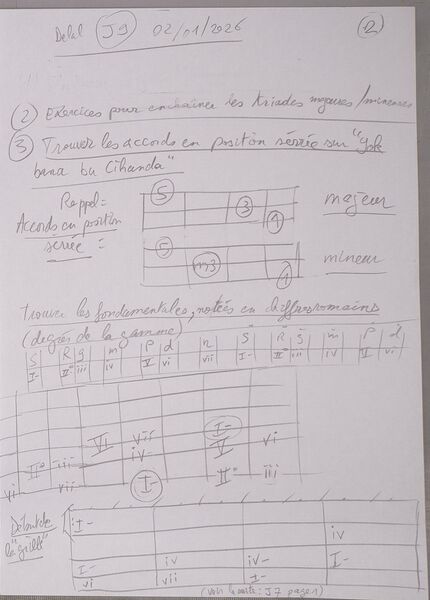 Delal J9 02/01/2026 2
2 Exercices pour enchaîner les triades majeures/mineures
3 Trouver les accords en position sérrée sur "Yok
bana bu Cihanda"
Rappel=
Accords en position
serrée =
5 3 1 majeur
5 m3 1 mineur
Trouver les fondamentales, notées en chiffres romains
(degrés de la gamme)
S R g m P d n S R g m P d
I- II° iii iv V vi vii I- II° iii iv V vi
VI vii I- vi
iv- V
II° iii I- II° iii
vi vii
Début de
la "grille"
I-
iv
I- iv iv- I-
vi vii I-
(voir la suite: J7 page 1)